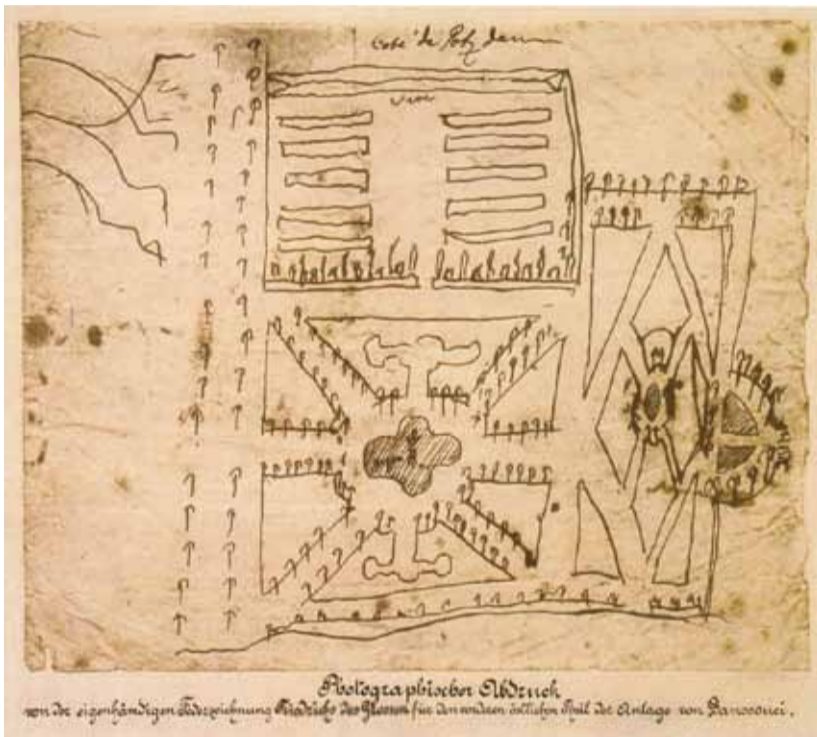 Coté de Potzdam
Photographischer Abdruck
von der eigenhändigen Federzeichnung Friedrichs des Grossen für den vorderen östlichen Theil der Anlage von Sanssouci.